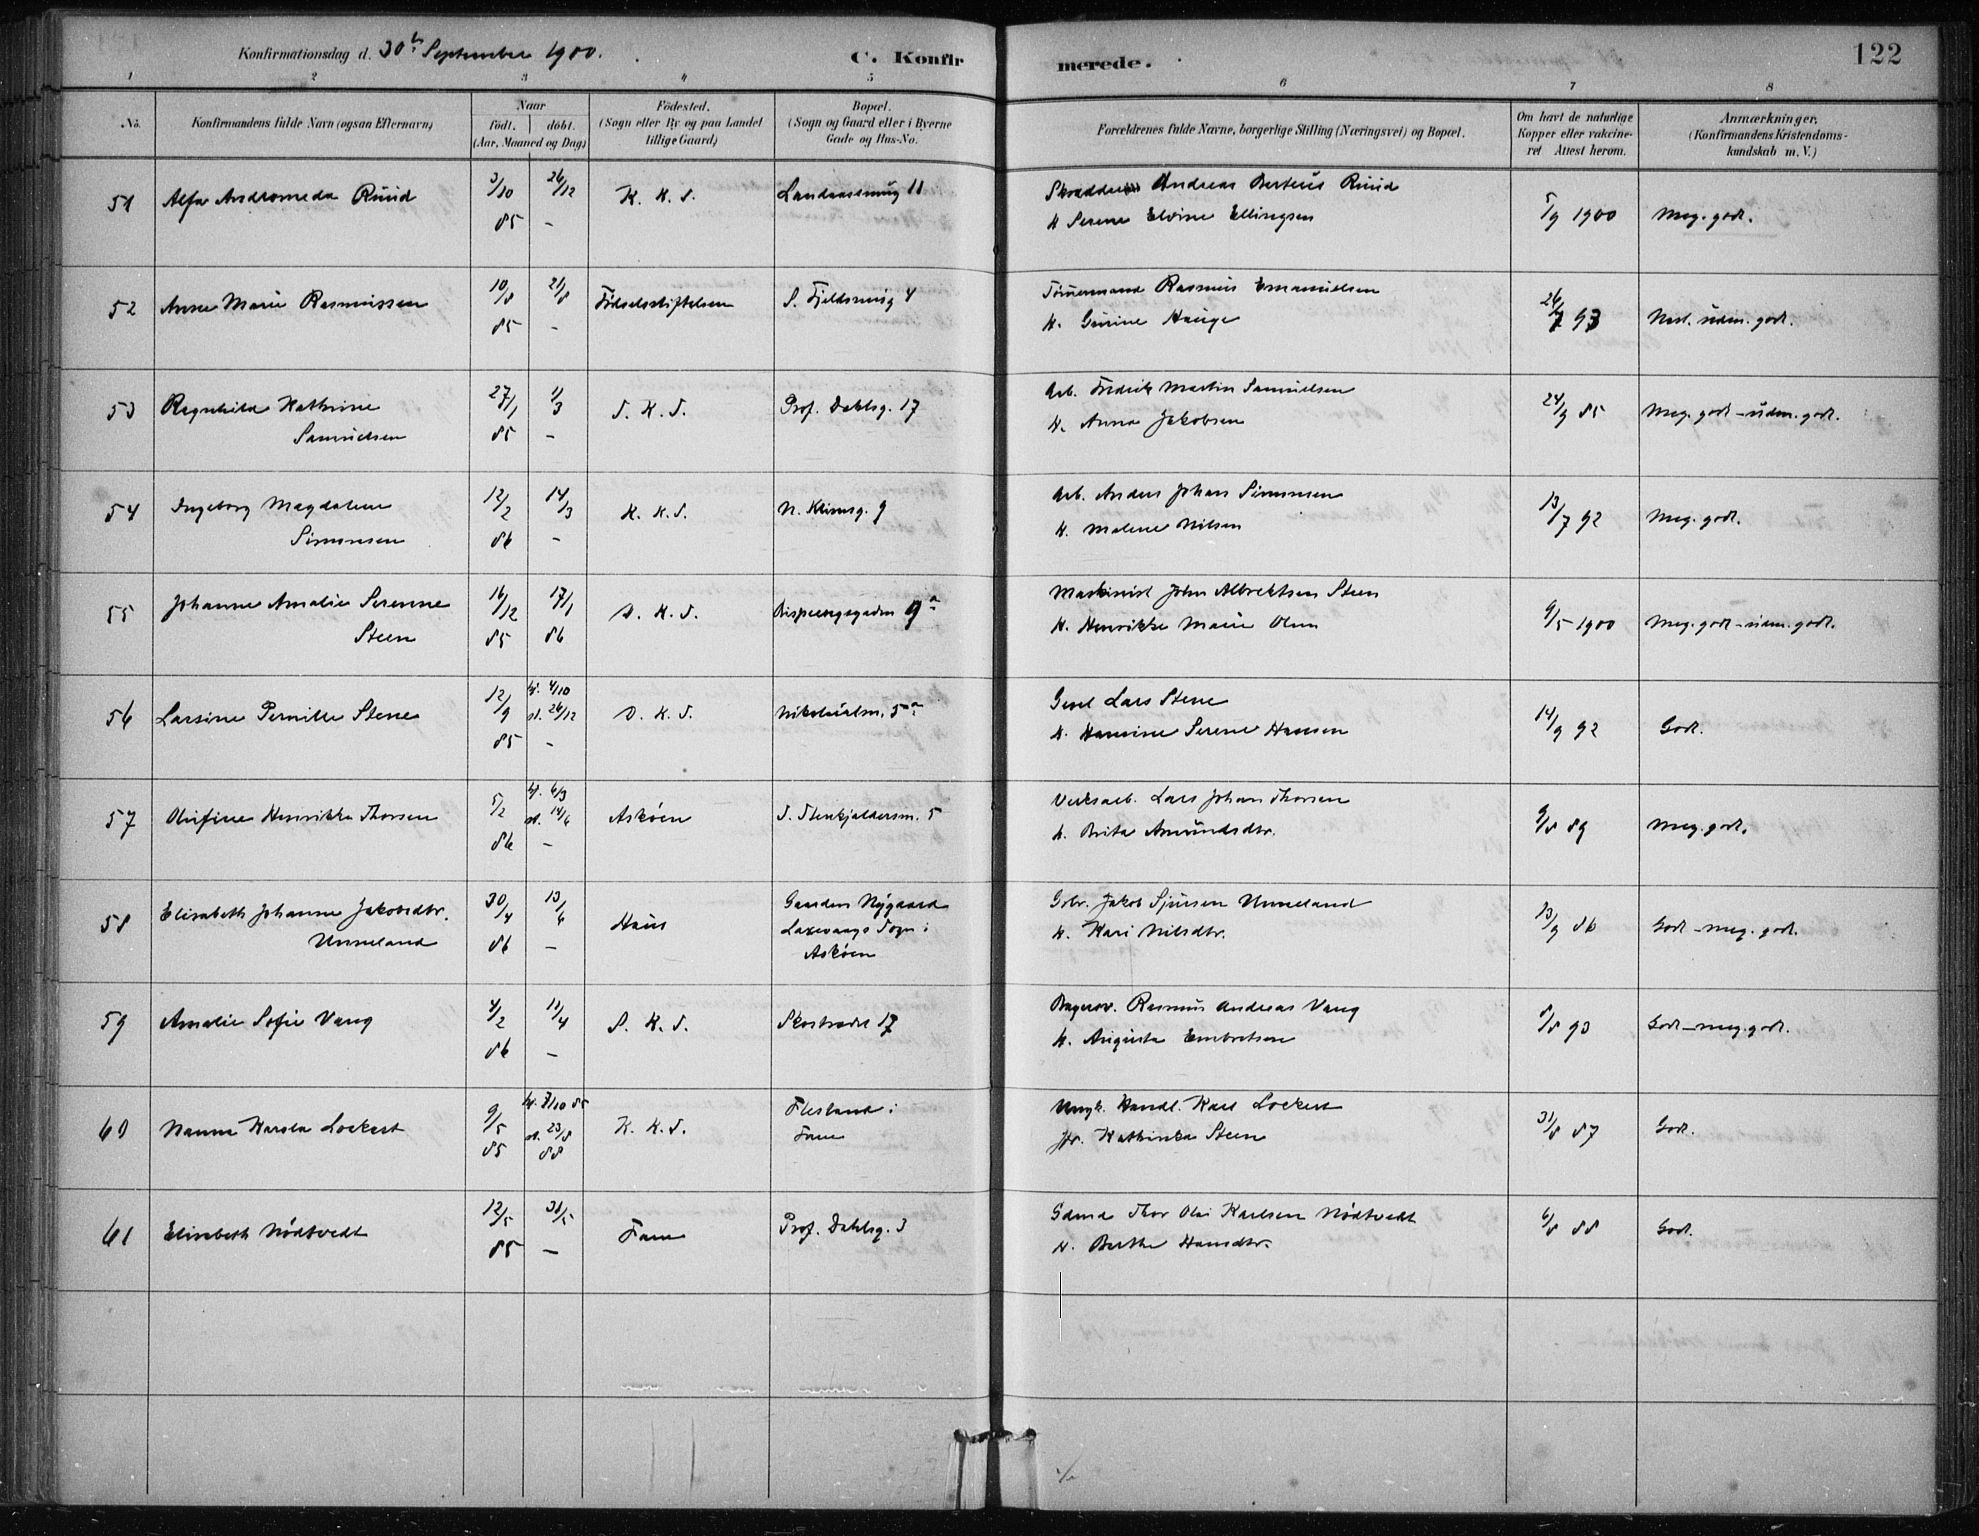 Konfirmationsdag d. 30te September 1900.
C. Konfirmerede.
122
1 2 3 4 5 6 7 8
No.
Konfirmandens fulde Navn (ogsaa Efternavn)
Naar
født. døbt.
(Aar, Maaned og Dag)
Fødested.
(Sogn eller By og paa Landet
tillige Gaard)
Bopæl.
(Sogn og Gaard eller i Byerne
Gade og Hus-No.
Forældrenes fulde Navne, borgerlige Stilling (Næringsvei) og Bopæl.
Om havt de naturlige
Kopper eller vakcine-
ret Attest herom.
Anmærkninger.
(Konfirmandens Kristendoms-
kundskab m. V.)
51 Alfar Andromeda Ruud 3/10 85 26/12 - K. K. S. 11
Andreas Berteus Ruud
H Serene Elvine Ellingsen
5/9 1900 Meg. godt.
52 Anne Marie Rasmussen 10/8 85 21/8 - Fødselsstiftelsen S. Fjeldsmug 4
Tømmermand Rasmus Emanuelsen
H. Gurine Hauge
26/7 93 Next. udm. godt.
53 Ragnhild Kathrine
Samuelsen
27/1 85 1/3 - D. K. S. Prof. Dahlsg. 17
Arb. Fredrik Martin Samuelsen
H. Anna Jakobsen
24/9 85 Meg. godt - udm. godt.
54 Ingeborg Magdalene
Simonsen
12/2 86 14/3 - K. K. S. N. Klosterg. 9
Arb. Anders Johan Simonsen
H. Malene Nilsen
13/7 92 Meg. godt.
55 Johanne Amalie Serenne
Steen
16/12 85 17/1 86 D. K. S. Bispeengsgaden 9a
Maskinist John Albrektsen Steen
H. Henrikke Marie Olsen
9/5 1900 Meg. godt - udm. godt.
56 Larsine Pernille Stene 12/9 85 hj. 4/10 st. 26/12 - D. K. S. Nikolaialm. 5a
Lars Stene
H. Hansine Serene Hansen
14/9 92 Godt.
57 Olufine Henrikke Thorsen 5/2 86 hj. 6/3 st. 14/6 - Askøen S. Stenkjeldersm. 5
Verksarb. Lars Johan Thorsen
H. Brita Amundsdtr.
9/8 89 Meg. godt.
58 Elisabeth Johanne Jakobsdtr.
Unneland
30/4 86 13/6 - Haus
Gaarden Nygaard
Laxevaags Sogn i
Askøen
Gbr. Jakob Sjursen Unneland
H. Kari Nilsdtr.
13/9 86 Godt - meg. godt.
59 Amalie Sofie Vang 4/2 86 11/4 - S. K. S. Skostredet 17
Rasmus Andreas Vang
H. Augusta Embretsen
8/8 93 Godt - meg. godt.
60 Nanna Karola Lockert 9/5 85 hj. 7/10 85 st. 23/8 88 K. K. S.
Flesland i
Fane
Ungk. Handl. Karl Lockert
Pge. Kathinka Steen
31/8 87 Godt.
61 Elisabeth Nødtvedt 12/5 85 31/5 - Fane Prof. Dahlsg. 3
Gdmd. Thor Olai Karlsen Nødtvedt
H. Berthe Hansdtr.
6/8 88 Godt.